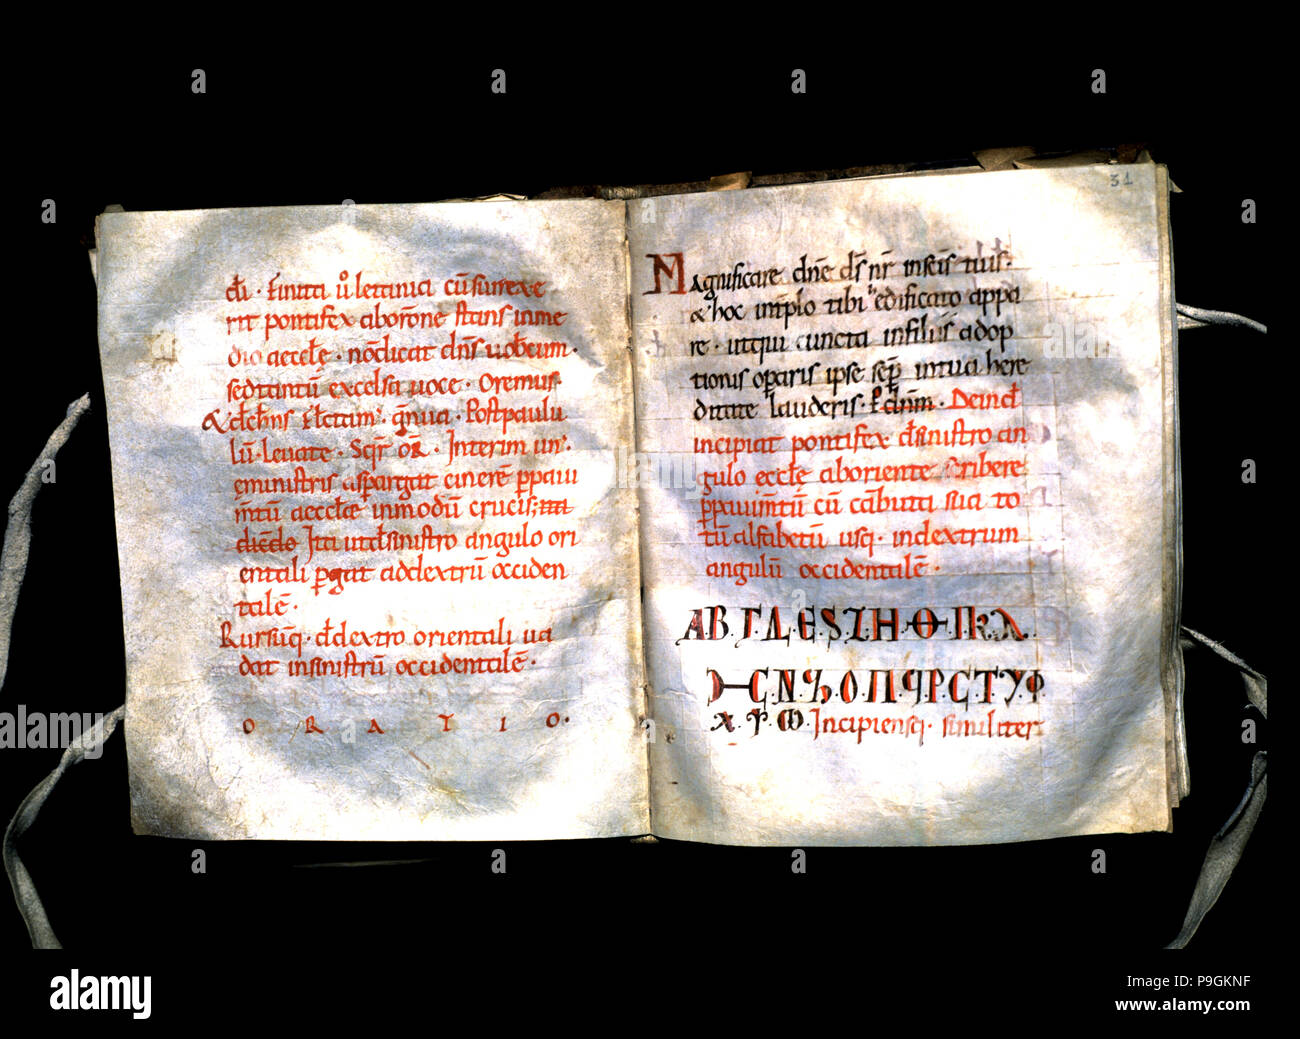 di · Finita ů letania cū surrexe
rit pontifex ab orōne stans in me
dio aecclę · nō dicat dn̄s uobcum ·
sed tantū excelsa uoce · Oremus ·
Et flectam' genua · Post paulu
lū · Leuate · Seqr̄ or̄ · Interim un'
ęministris aspargat cinerē p paui
m̄tū aecclae in modū crucis; ita
dicedo Ita ut d sinistro angulo ori
entali pgat ad dextrū occiden
talē ·
Rursūq · d dextro orientali ua
dat in sinistrū occidentalē ·
O R A T I O ·
31
Magnificare dn̄e ds̄ nr̄ in sc̄is tuis ·
& hoc in tēplo tibi edificato appa
re · ut qui cuncta in filiis adop
tionis oparis ipse sep in tua here
ditate lauderis · Deind
incipiat pontifex d sinistro an
gulo ecclę ab oriente scribere
p pauim̄tū cū cābuta sua to
tū alfabetū usq · in dextrum
angulū occidentalē ·
A · B · Γ · Δ · E · S · Z · H · Θ · I · K · λ ·
C · N · O · Π · P · C · T · Y · Φ
X · Ψ · ω · Incipiensq · similiter
alamy
Image ID: P9GKNF
www.alamy.com